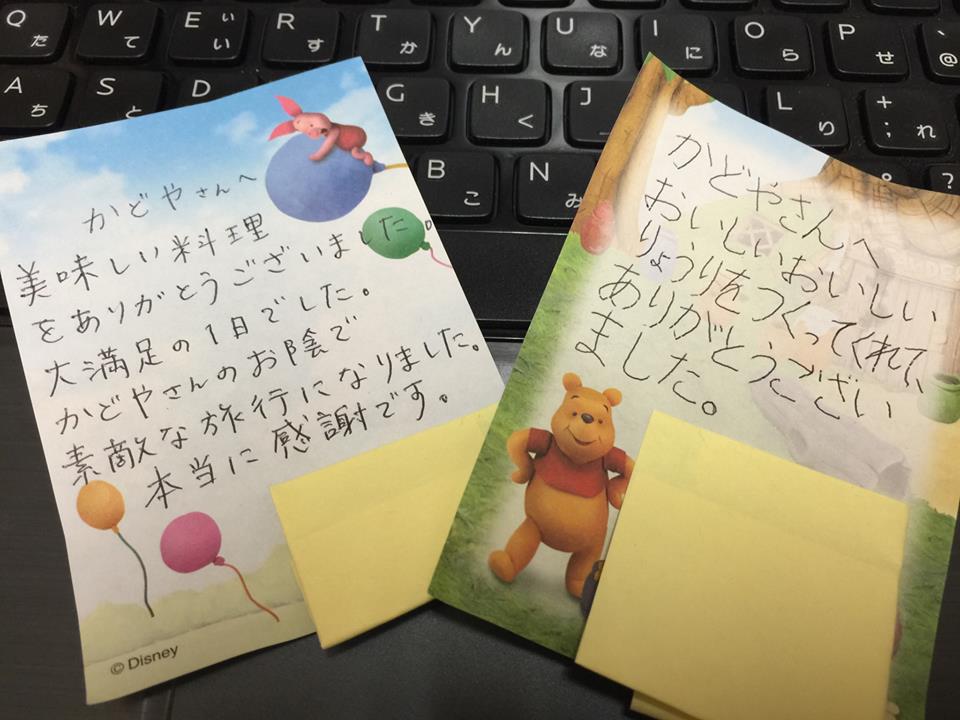 Q
た
W
て
E
い
い
R
す
T
か
Y
ん
U
な
I
に
O
ら
P
せ
@
A
ち
S
と
D
G
き
H
く
J
L
り
+
;
れ
B
こ
N
み
?
かどやさんへ
美味しい料理
をありがとうございました。
大満足の1日でした。
かどやさんのお陰で
素敵な旅行になりました。
本当に感謝です。
© Disney
かどやさんへ
おいしいおいしい
りょうりをつくってくれて、
ありがとうござい
ました。